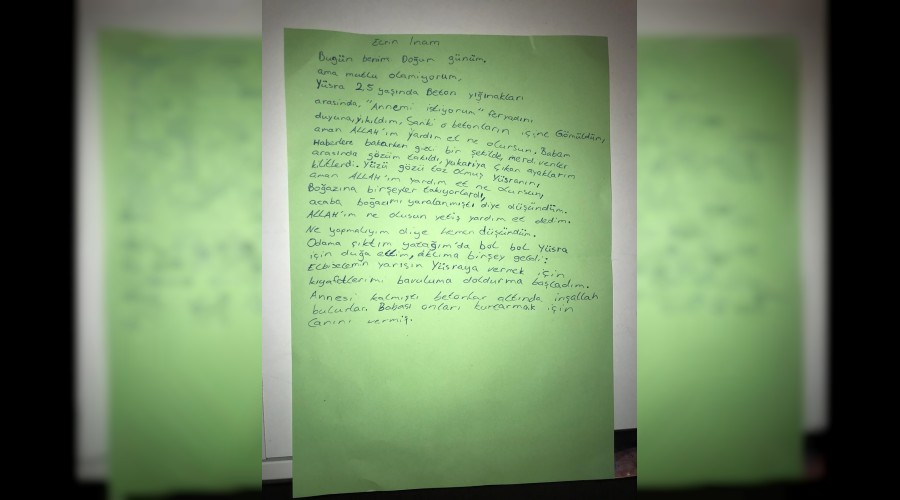 Ecrin İnam
Bugün benim Doğum günüm,
ama mutlu olamıyorum,
Yüsra 2.5 yaşında Beton yığınakları
arasında. "Annemi istiyorum" feryadını
duyunca, yıkıldım, Sanki o betonların içine Gömüldüm,
aman ALLAH'ım Yardım et ne olursun. Babam
Haberlere bakarken gizli bir şekilde, merdivenler
arasında gözüm takıldı, yukarıya çıkan ayaklarım
kitlendi. Yüzü gözü toz olmuş Yüsranın,
aman ALLAH'ım yardım et ne olursun,
Boğazına birşeyler takıyorlardı,
acaba boğazımı yaralanmıştı diye düşündüm.
ALLAH'ım ne olusun yetiş yardım et dedim.
Ne yapmalıyım diye hemen düşündüm.
Odama çıktım yatağım'da bol bol Yüsra
için duğa ettim, aklıma birşey geldi:
Elbiselemin yarısın Yüsraya vermek için
kıyafetlerimi bavuluma doldurma başladım.
Annesi kalmıştı betonlar altında inşallah
bulurlar. Babası onları kurtarmak için
Canını vermiş.